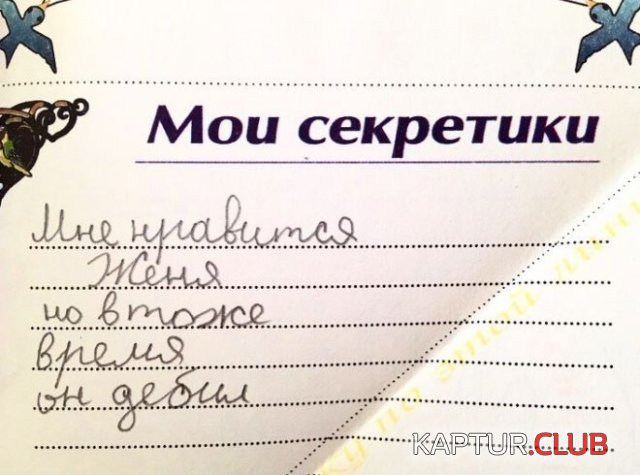 Мои секретики
Мне нравится
Женя
но втоже
время
он дебил
ку по этой лини
KAPTUR.CLUB